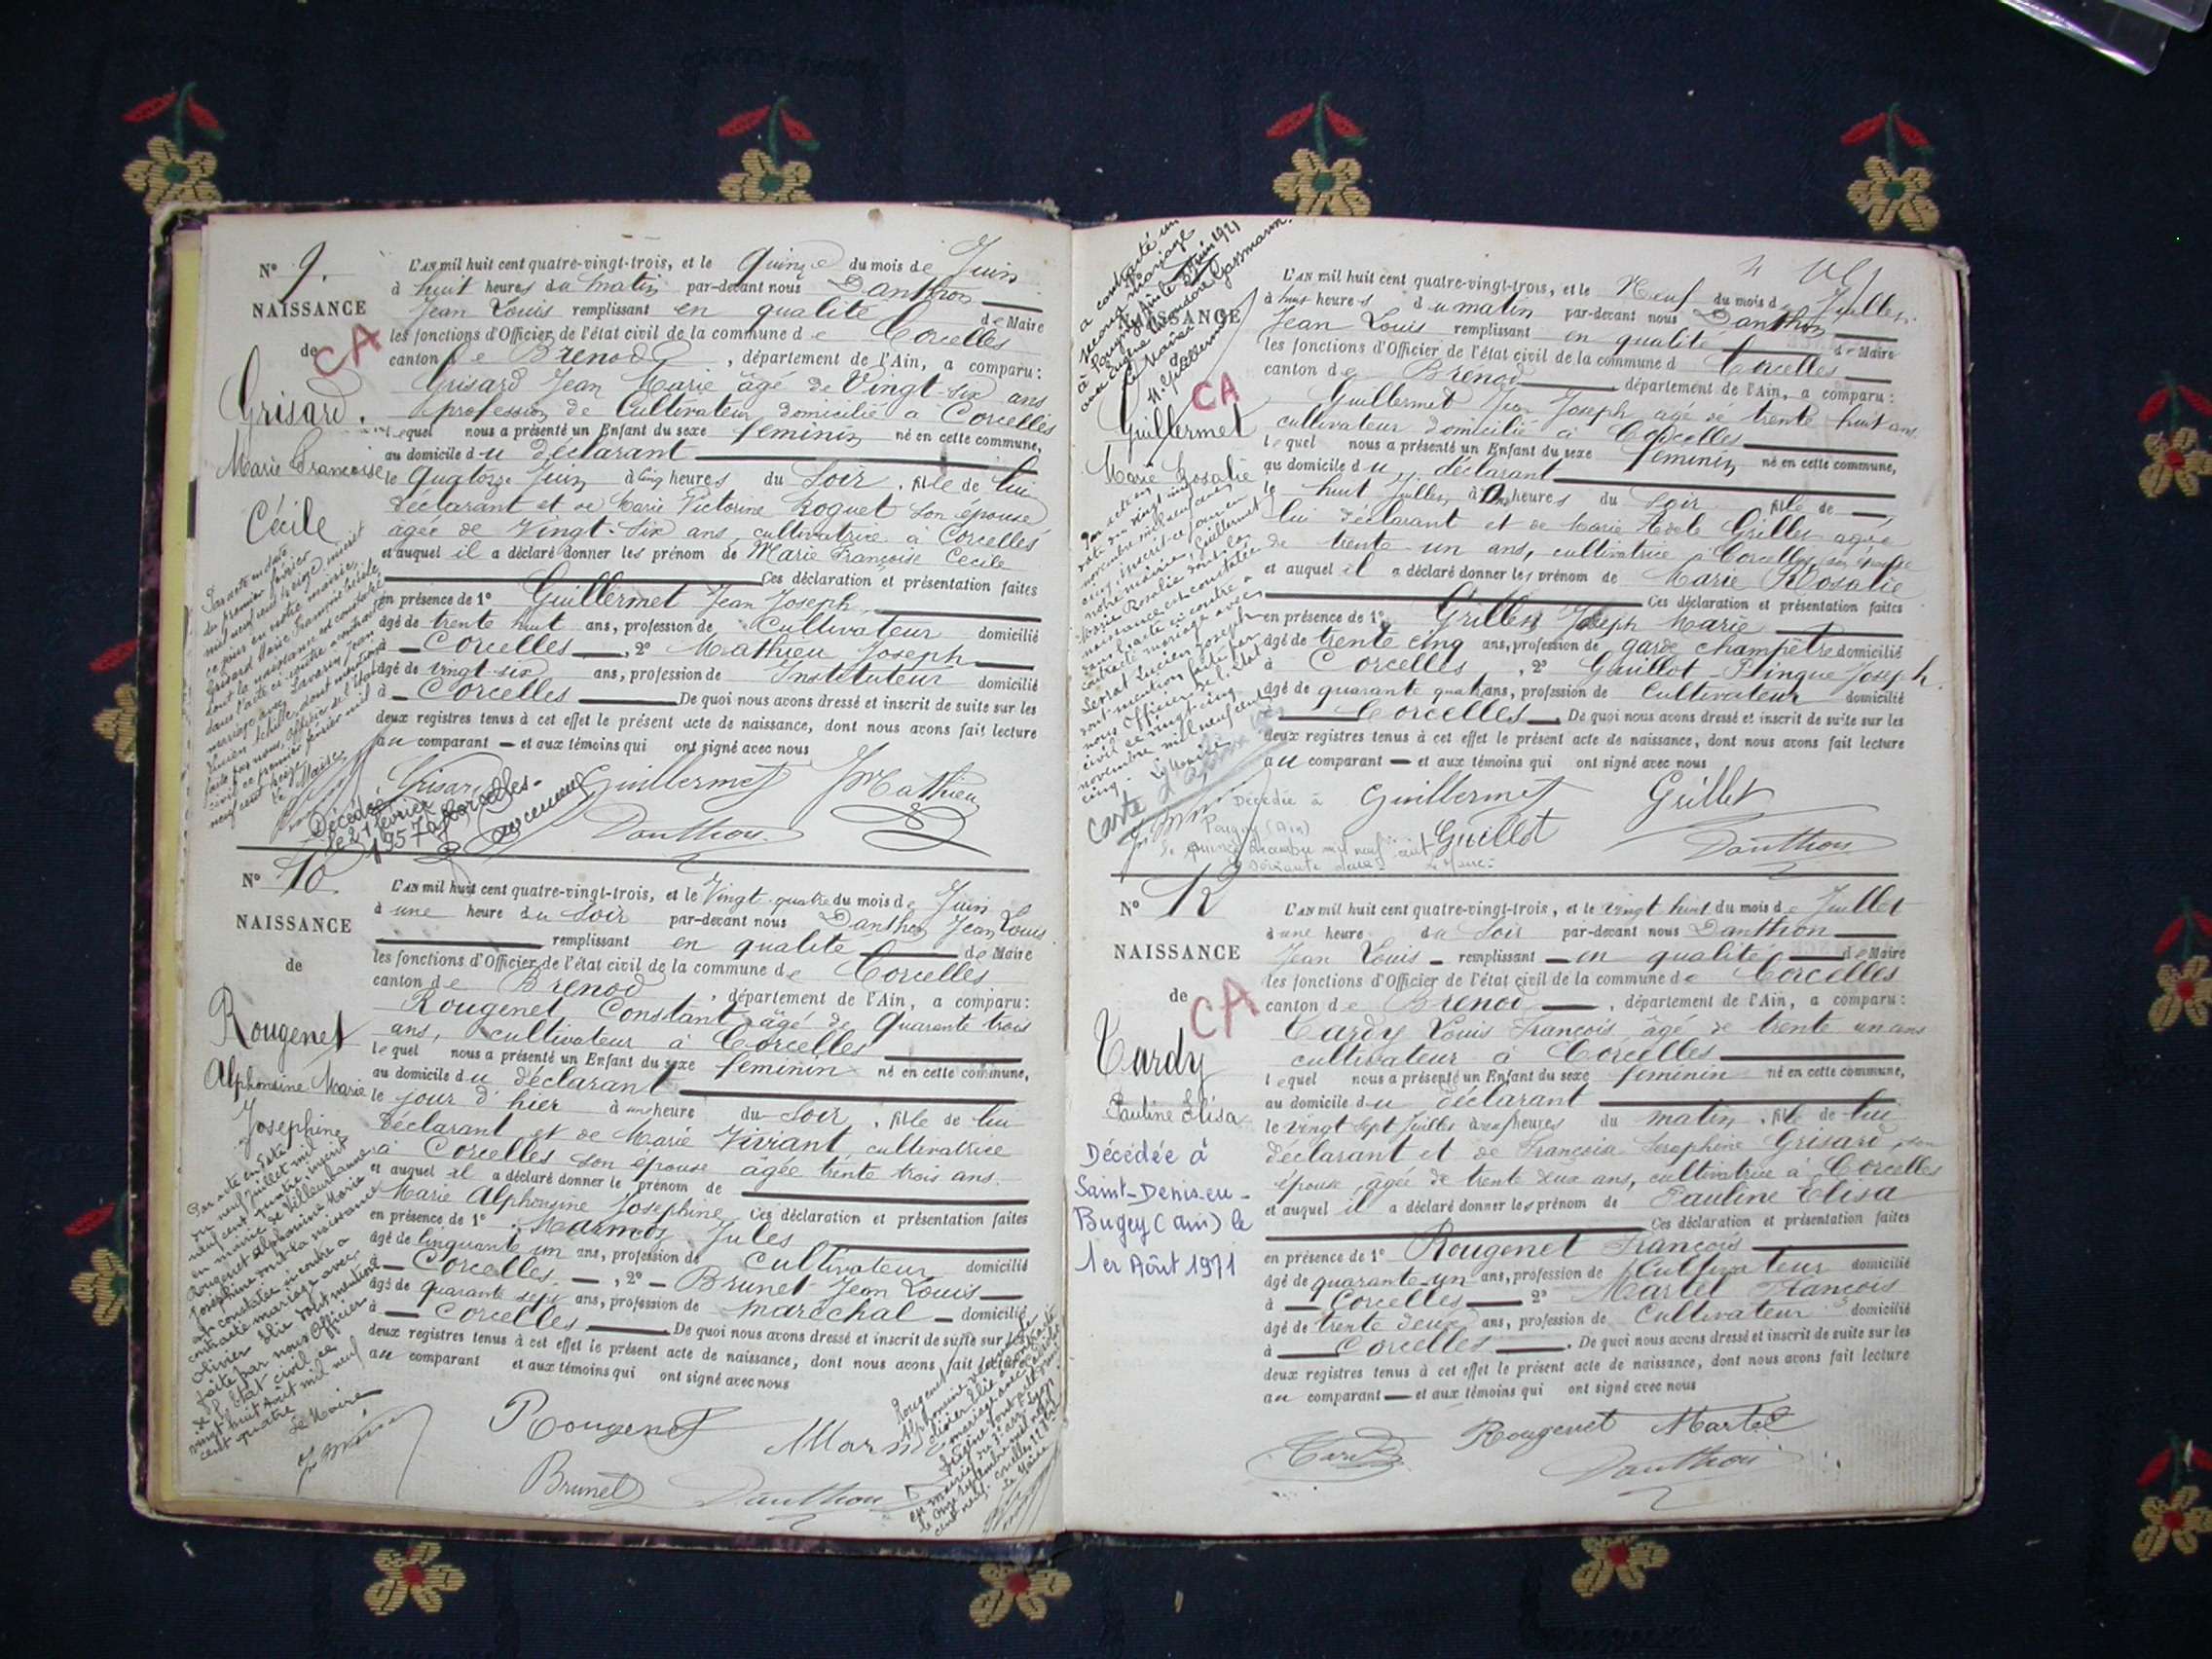 N° 9.
NAISSANCE
de
CA
Grisard.
Marie Francoise
Cécile
L'AN mil huit cent quatre-vingt-trois, et le quinze du mois de Juin
à huit heures du matin par-devant nous Danthon
Jean Louis remplissant en qualité de Maire
les fonctions d'Officier de l'état civil de la commune de Corcelles
canton de Brenod, département de l'Ain, a comparu:
Grisard Jean Marie âgé de Vingt-six ans
profession de Cultivateur domicilié à Corcelles
lequel nous a présenté un Enfant du sexe féminin né en cette commune,
au domicile du déclarant
le quatorze Juin à cinq heures du Soir, fille de lui
déclarant et de Marie Victorine Roguet son épouse
âgée de Vingt-six ans, cultivatrice à Corcelles
et auquel il a déclaré donner les prénom de Marie Françoise Cécile
Ces déclaration et présentation faites
en présence de 1° Guillermet Jean Joseph
âgé de trente huit ans, profession de Cultivateur domicilié
à Corcelles, 2° Mathieu Joseph
âgé de vingt-six ans, profession de Instituteur domicilié
à Corcelles De quoi nous avons dressé et inscrit de suite sur les
deux registres tenus à cet effet le présent acte de naissance, dont nous avons fait lecture
au comparant et aux témoins qui ont signé avec nous
Par acte en date
du premier février
mil neuf cent treize inscrit
ce jour en notre mairie,
Grisard Marie Françoise Cécile
dont la naissance est constatée
dans l'acte ci-contre a contracté
mariage avec Savarin Jean
Lucien Achille, dont mention
faite par nous, officier de l'Etat
civil ce premier février mil
neuf cent treize
Le Maire
Grisard Guillermet JMathieu
Danthon
Décédée
le 21 février
1957 à Corcelles.
N° 10
NAISSANCE
de
Rougenet
Alphonsine Marie
Josephine
L'AN mil huit cent quatre-vingt-trois, et le Vingt-quatre du mois de Juin
à une heure du Soir par-devant nous Danthon Jean Louis
remplissant en qualité de Maire
les fonctions d'Officier de l'état civil de la commune de Corcelles
canton de Brenod, département de l'Ain, a comparu:
Rougenet Constant âgé de quarante trois
ans, cultivateur à Corcelles
lequel nous a présenté un Enfant du sexe féminin né en cette commune,
au domicile du déclarant
le jour d'hier à une heure du Soir, fille de lu
déclarant et de Marie Viviant cultivatrice
à Corcelles son épouse âgée trente trois ans.
et auquel il a déclaré donner le prénom de
Marie Alphonsine Josephine Ces déclaration et présentation faites
en présence de 1° Marmos Jules
âgé de cinquante un ans, profession de Cultivateur domicilié
à Corcelles, 2° Brunet Jean Louis
âgé de quarante sept ans, profession de maréchal domicilié
à Corcelles De quoi nous avons dressé et inscrit de suite sur les
deux registres tenus à cet effet le présent acte de naissance, dont nous avons fait lecture
au comparant et aux témoins qui ont signé avec nous
Par acte en date
du neuf juillet mil
neuf cent quatre inscrit
en mairie de Villeurbanne
Rougenet Alphonsine Marie
Josephine dont la naissance
est constatée ci-contre a
contracté mariage avec
Olivier Elie dont mention
faite par nous Officier
de l'Etat civil ce
vingt huit Août mil neuf
cent quatre
Le Maire
Rougenet Marmo
Brunet Danthon
Rougenet
Alphonsine
en mairie du 3e arr. Lyon
le onze septembre mil neuf
cent neuf.
Le Maire
a contracté un
second mariage
à Pougny
avec Eugène Gassmann.
Le Maire
NAISSANCE
CA
Guillermet
Marie Rosalie
L'AN mil huit cent quatre-vingt-trois, et le Neuf du mois de Juillet
à huit heures du matin par-devant nous Danthon
Jean Louis remplissant en qualité de Maire
les fonctions d'Officier de l'état civil de la commune d Corcelles
canton de Brénod, département de l'Ain, a comparu:
Guillermet Jean Joseph âgé de trente huit ans
cultivateur domicilié à Corcelles
lequel nous a présenté un Enfant du sexe féminin né en cette commune,
au domicile du déclarant
le huit Juillet à heures du Soir fille de
lui déclarant et de Marie Adèle Grillet agée
de trente-un ans, cultivatrice à Corcelles son épouse
et auquel il a déclaré donner les prénom de Marie Rosalie
Ces déclaration et présentation faites
en présence de 1° Grillet Joseph Marie
âgé de trente cinq ans, profession de garde champêtre domicilié
à Corcelles, 2° Guillot-Plingue Joseph.
âgé de quarante quatre ans, profession de Cultivateur domicilié
à Corcelles De quoi nous avons dressé et inscrit de suite sur les
deux registres tenus à cet effet le présent acte de naissance, dont nous avons fait lecture
au comparant et aux témoins qui ont signé avec nous
Par acte en
date du vingt cinq
novembre mil neuf cent
cinq, inscrit ce jour en
notre mairie, Guillermet
Marie Rosalie dont la
naissance est constatée
dans l'acte ci-contre a
contracté mariage avec
Lucien Joseph
dont mention faite par
nous Officier de l'état
civil ce vingt cinq
novembre mil neuf cent
cinq.
Le Maire
Guillermet Grillet
Guillot Danthon
Décédée à
Pougny (Ain)
le quinze décembre mil neuf cent
soixante
N° 12
NAISSANCE
de
CA
Tardy
Pauline Elisa
Décédée à
Saint-Denis-en-
Bugey (Ain) le
1er Août 1971
L'AN mil huit cent quatre-vingt-trois, et le vingt huit du mois de Juillet
à une heure du Soir par-devant nous Danthon
Jean Louis remplissant en qualité de Maire
les fonctions d'Officier de l'état civil de la commune de Corcelles
canton de Brenod, département de l'Ain, a comparu:
Tardy Louis François âgé de trente un ans
cultivateur à Corcelles
lequel nous a présenté un Enfant du sexe féminin né en cette commune,
au domicile du déclarant
le vingt sept Juillet à neuf heures du matin, fille de lui
déclarant et de Françoise Séraphine Grisard, son
épouse, âgée de trente deux ans, cultivatrice à Corcelles
et auquel il a déclaré donner les prénom de Pauline Elisa
Ces déclaration et présentation faites
en présence de 1° Rougenet François
âgé de quarante-un ans, profession de Cultivateur domicilié
à Corcelles 2° Martel François
âgé de trente deux ans, profession de Cultivateur domicilié
à Corcelles. De quoi nous avons dressé et inscrit de suite sur les
deux registres tenus à cet effet le présent acte de naissance, dont nous avons fait lecture
au comparant et aux témoins qui ont signé avec nous
Tardy Rougenet Martel
Danthon